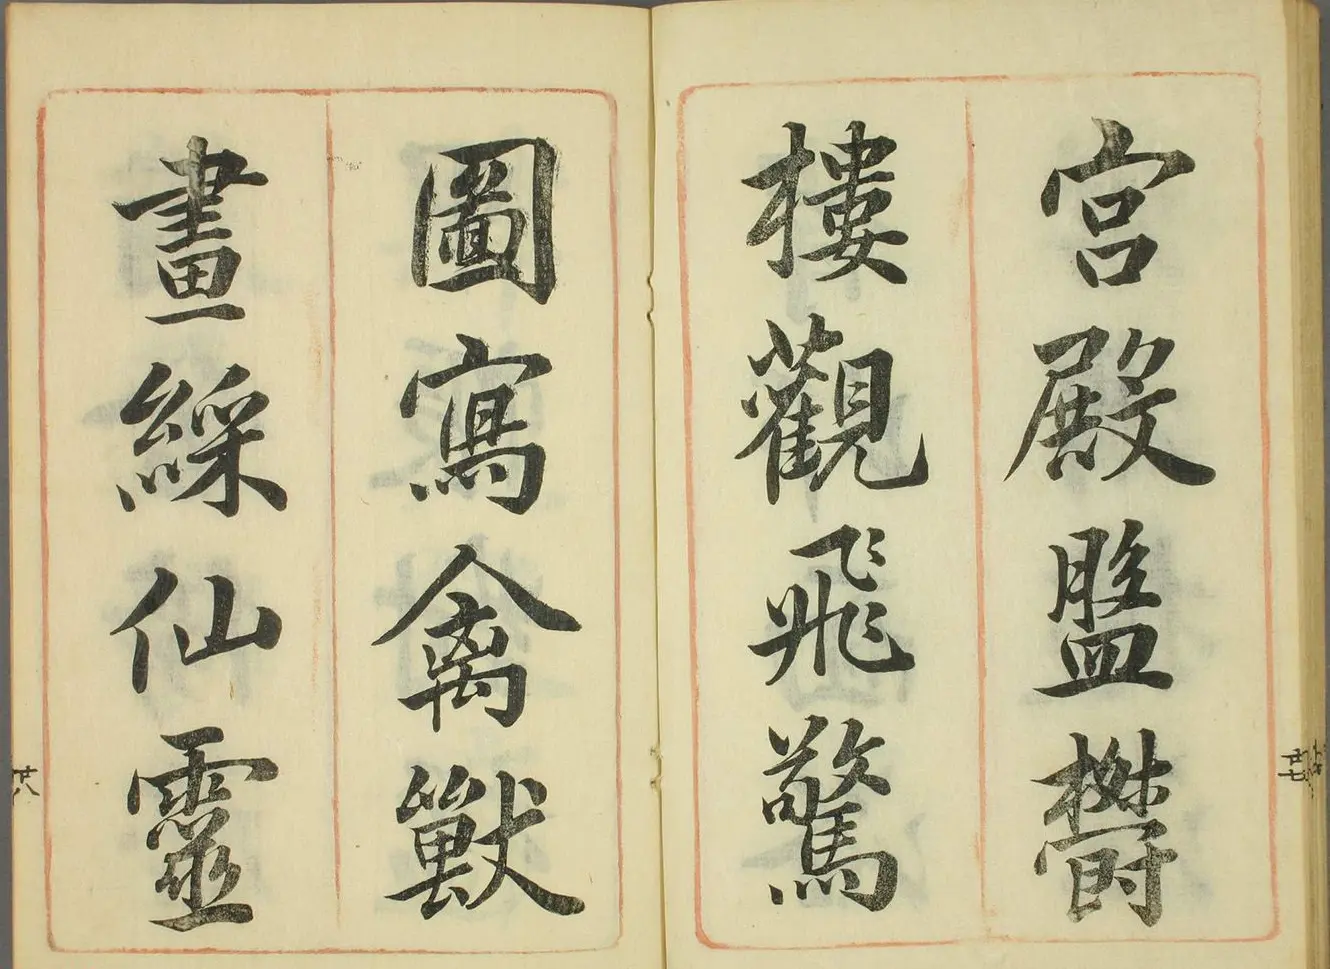 宮殿盤欝
樓觀飛驚
圖寫禽獸
畫綵仙靈
廿七
廿八